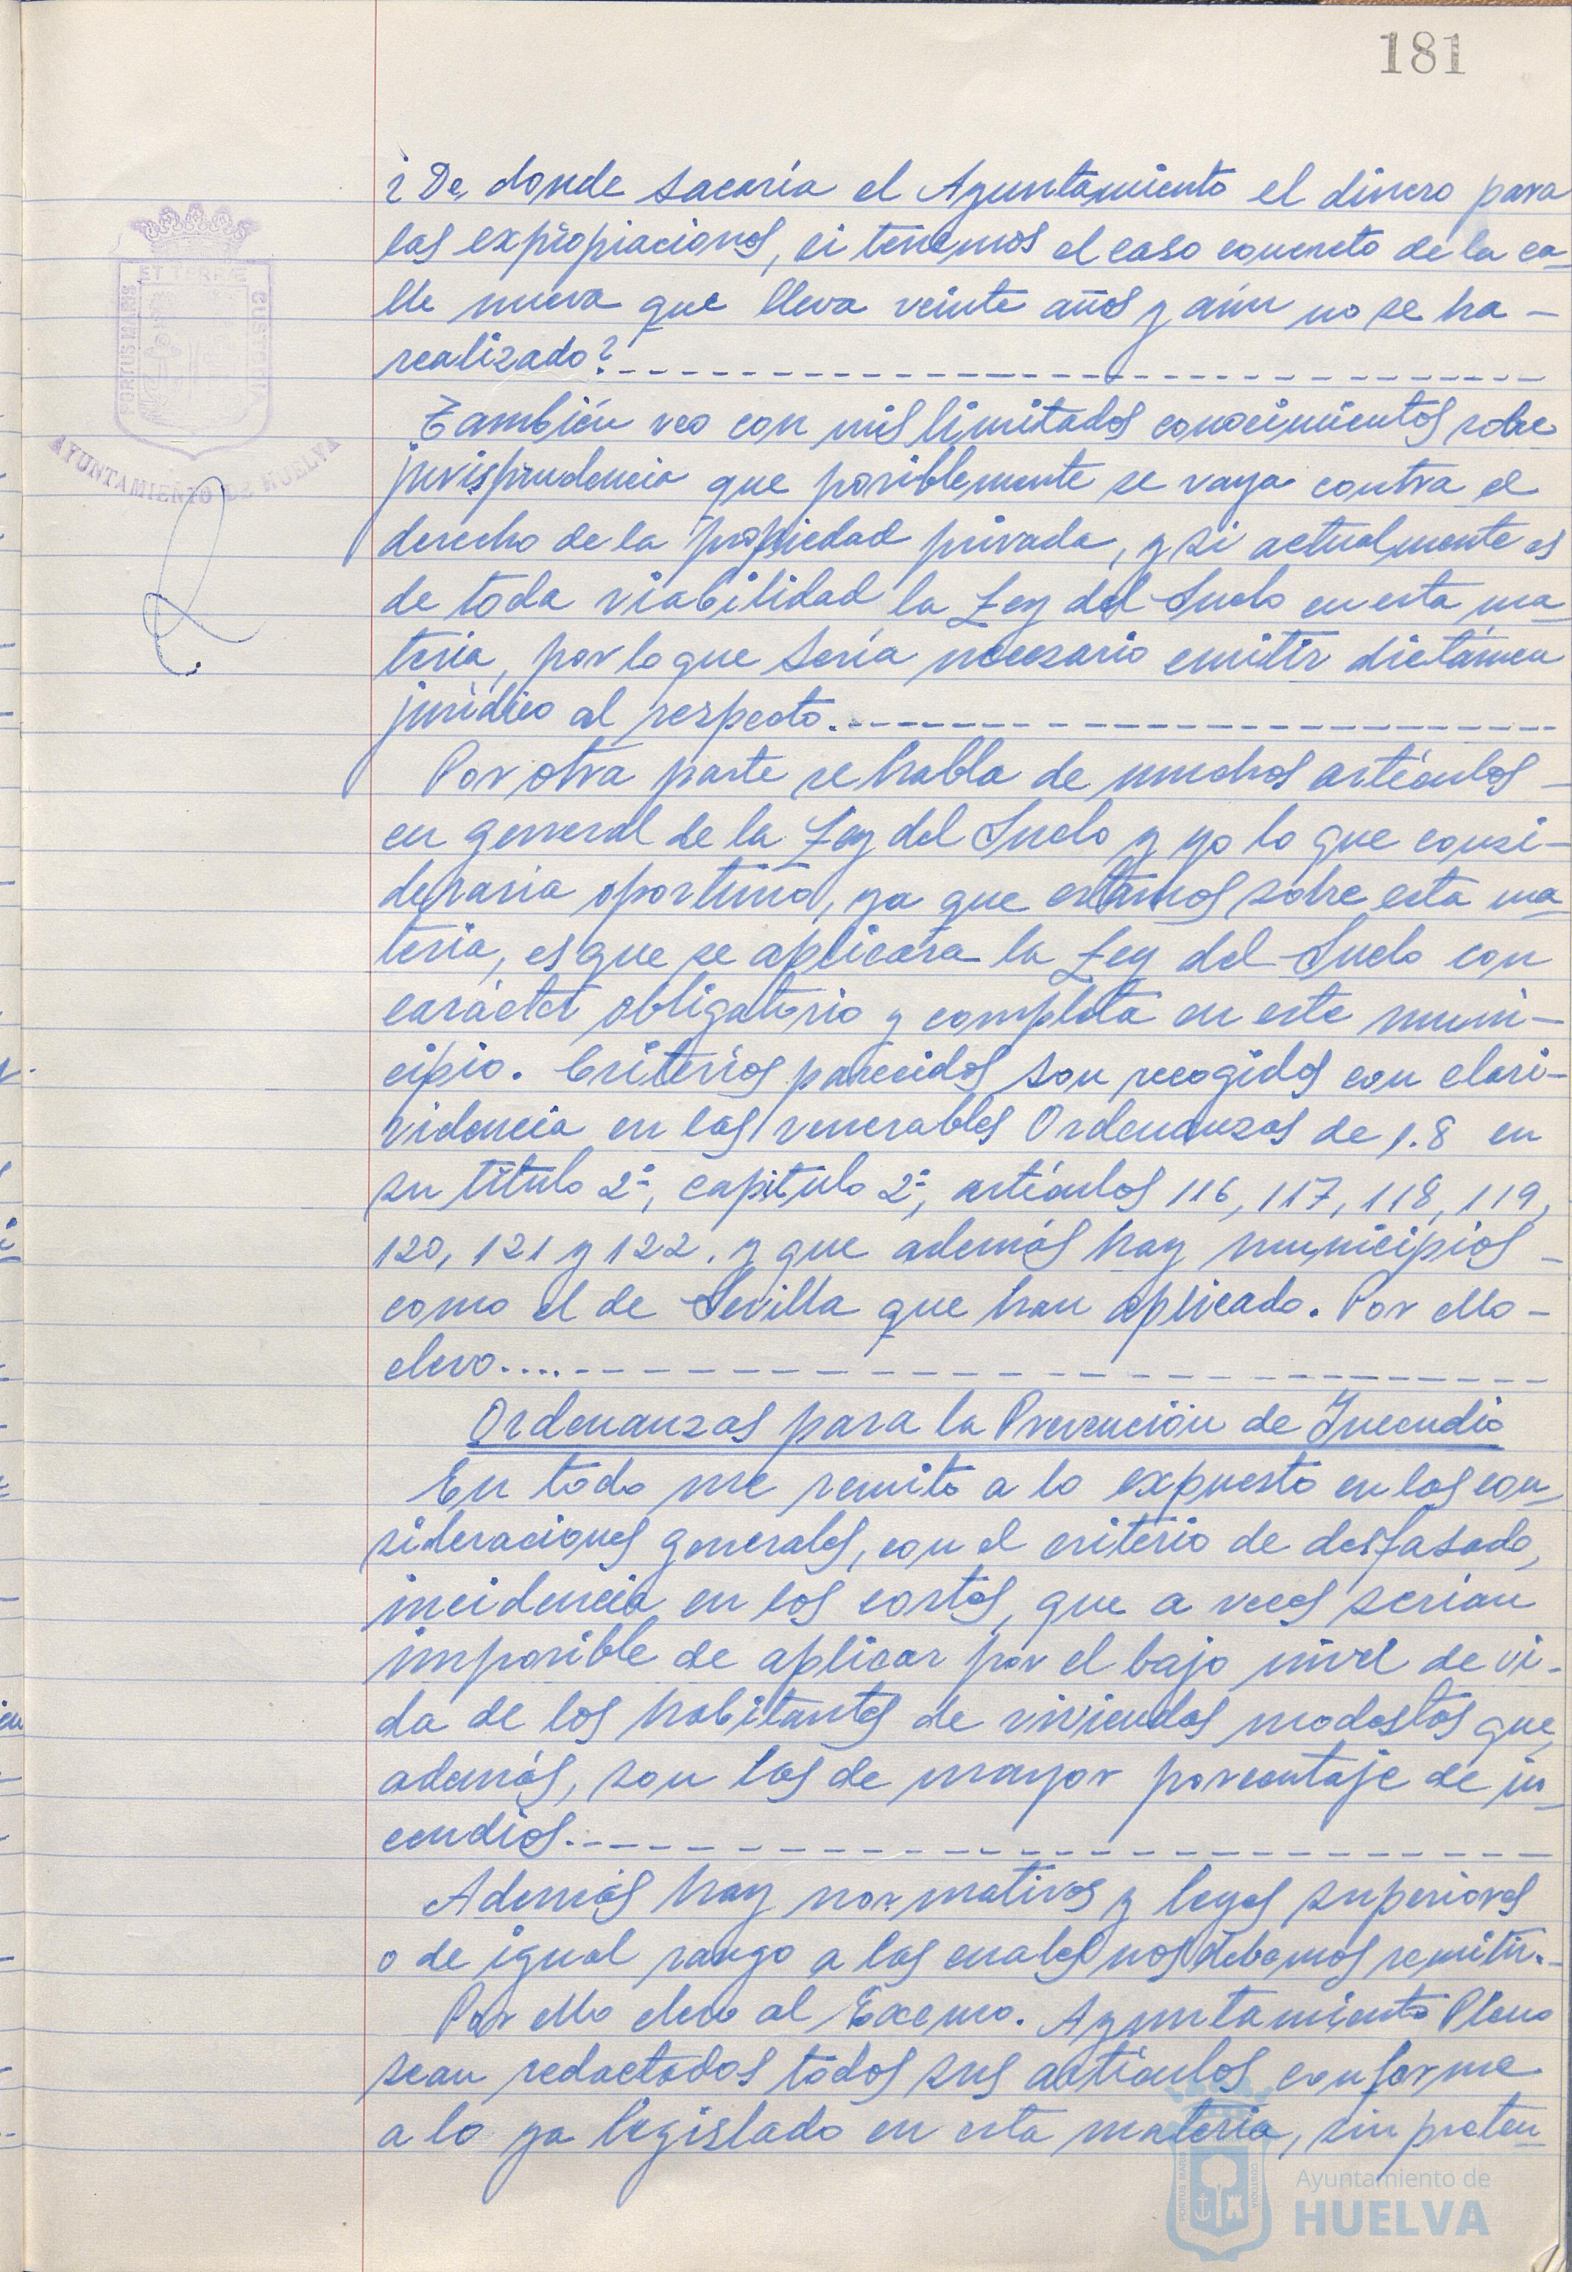 181
¿De donde sacaría el Ayuntamiento el dinero para
las expropiaciones, si tenemos el caso concreto de la ca-
lle nueva que lleva veinte años y aún no se ha -
realizado?
También veo con mis limitados conocimientos sobre
jurisprudencia que posiblemente se vaya contra el
derecho de la propiedad privada, y si actualmente es
de toda viabilidad la Ley del Suelo en esta ma-
teria, por lo que sería necesario emitir dictámen
jurídico al respecto.
Por otra parte se habla de muchos artículos -
en general de la Ley del Suelo y yo lo que consi-
deraria oportuno, ya que estamos sobre esta ma-
teria, es que se aplicara la Ley del Suelo con
carácter obligatorio y completa en este muni-
cipio. Criterios parecidos son recogidos con clari-
videncia en las venerables Ordenanzas de 1.8 en
su título 2º, capitulo 2º, artículos 116, 117, 118, 119,
120, 121 y 122. y que además hay municipios -
como el de Sevilla que han aplicado. Por ello -
elevo....
Ordenanzas para la Prevención de Incendio
En todo me remito a lo expuesto en las con-
sideraciones generales, con el criterio de desfasado,
incidencia en los costos, que a veces serian
imposible de aplicar por el bajo nivel de vi-
da de los habitantes de viviendas modestas que,
además, son las de mayor porcentaje de in-
cendios.
Además hay normativas y leyes superiores
o de igual rango a las cuales nos debemos remitir.-
Por ello elevo al Excmo. Ayuntamiento Pleno
sean redactados todos sus artículos conforme
a lo ya legislado en esta materia, sin preten-
ET TERRÆ
PORTUS MARIS
CUSTODIA
AYUNTAMIENTO DE HUELVA
PORTUS MARIS
CUSTODIA
Ayuntamiento de
HUELVA